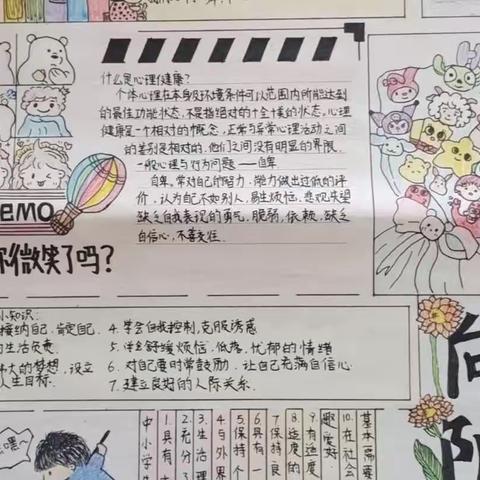 什么是心理健康？
个体心理在本身及环境条件可以范围内所能达到
的最佳功能状态，不是指绝对的十全十美的状态。心理
健康是一个相对的概念，正常与异常心理活动之间
的差别是相对的，他们之间没有明显的界限。
一般心理与行为问题——自卑
自卑。常对自己的能力，能力做出过低的评
价，认为自己不如别人，易生烦恼，悲观失望
缺乏自我表现的勇气，脆弱，依赖，缺乏
自信心，不善交往。
EMO
你微笑了吗？
小知识：
接纳自己，肯定自己。
的生活负责。
伟大的梦想，设立
人生目标。
4. 学会自我控制，克服诱惑
5. 样舒缓烦恼，低落，忧郁的情绪
6. 对自己要时常鼓励，让自己充满自信心
7. 建立良好的人际关系。
向
阳
嘿~
中小学生
1. 具有
2. 充分
3. 生活理
4. 与外界
5. 保持个
6. 具有一
7. 保持良
8. 适度的
9. 有适度
10. 在社会
趣爱好
基本需要